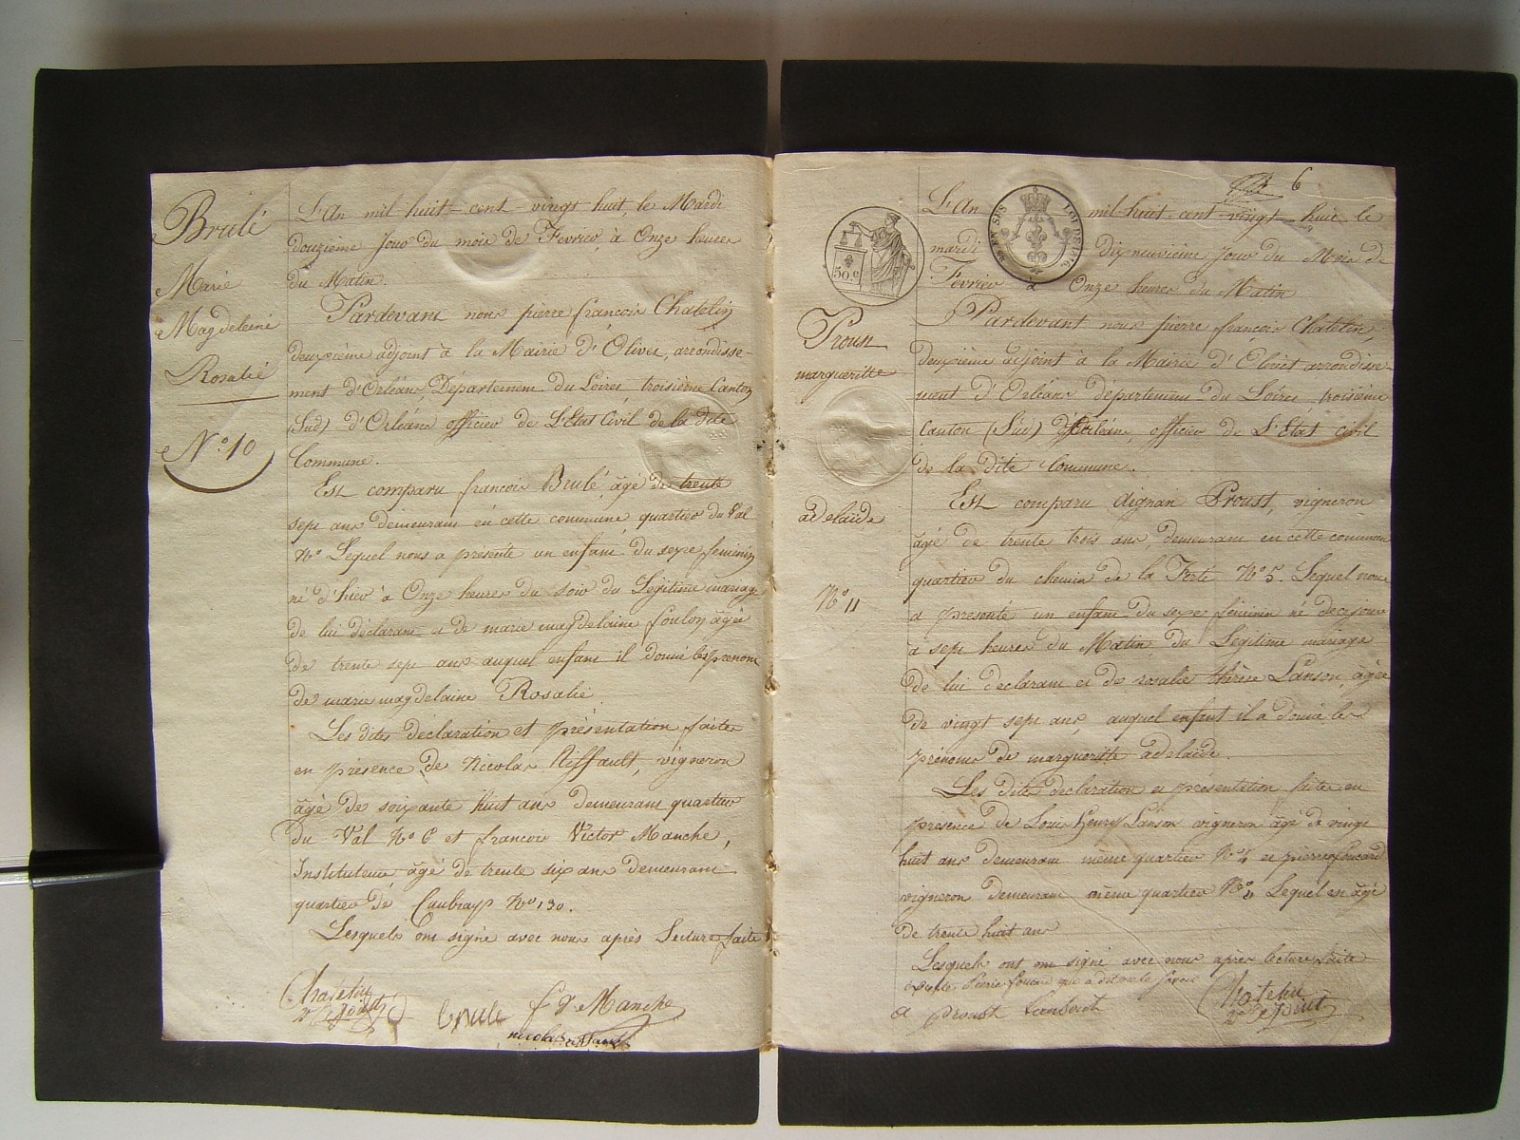 Brulé
Marie
Magdeleine
Rosalie
N.° 10
L'An mil huit-cent-vingt huit, le Mardi
douzieme jour du mois de Fevrier à Onze heures
du Matin.
Pardevant nous pierre françois Chatelin
deuxième adjoint à la Mairie d'Olivet, arrondisse-
ment d'Orléans, Département du Loiret, troisième Canton
(Sud) d'Orléans officier de L'Etat Civil de la dite
Commune.
Est comparu françois Brulé, âgé de trente
sept ans demeurant en cette commune, quartier du Val
N.° Lequel nous a presenté un enfant du sexe feminin
né d'hier à Onze heures du soir du Legitime mariage
de lui déclarant et de marie magdelaine foulon âgée
de trente sept ans auquel enfant il donné les prenoms
de marie magdelaine Rosalie.
Les dites déclaration et présentation faites
en présence de Nicolas Riffault, vigneron
âgé de soixante huit ans demeurant quartier
du Val N.° 6 et francois Victor Manche,
Instituteur âgé de trente six ans demeurant
quartier de Caubray N.° 130.
Lesquels ont signé avec nous après Lecture faite
Chatelin
2e adjoint
brulé
f V Manche
nicolas riffault
6
50 c
L'An mil huit cent vingt huit le
mardi dixneuvième jour du Mois de
Fevrier à Onze heures du Matin
Proust
margueritte
adelaïde
N.° 11
Pardevant nous pierre françois Chatelin,
deuxième adjoint à la Mairie d'Olivet arrondisse-
ment d'Orléans département du Loiret, troisième
Canton (Sud) d'Orléans, officier de L'Etat civil
de la dite Commune.
Est comparu Aignan Proust, vigneron
âgé de trente trois ans, demeurant en cette commune
quartier du chemin de la Ferté N.° 5. Lequel nous
a presenté un enfant du sexe féminin né de ce jour
a sept heures du Matin du Legitime mariage
de lui declarant et de rosalie thérèse Lanson, âgée
de vingt sept ans, auquel enfant il a donné les
prénoms de margueritte adelaïde.
Les dite declaration et présentation faites en
presence de Louis Henry Lanson vigneron âgé de vingt
huit ans demeurant même quartier N.° 4 et pierre foucard
vigneron demeurant même quartier N.° Lequel est âgé
de trente huit ans
Lesquels ont signé avec nous après lecture faite
Excepté Pierre foucard qui a dit ne le savoir
a proust
Chatelin
2e adjoint